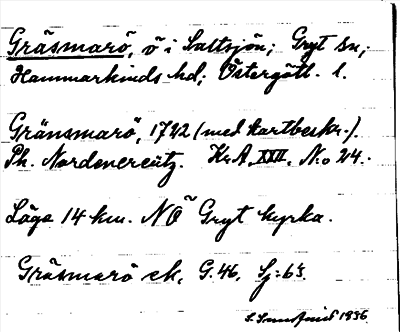 Gräsmarö, ö i Saltsjön; Gryt sn,;
Hammarkinds hd; Östergötl. l.
Gränsmarö, 1722 (med kartbeskr.).
Ph. Nordencreutz. Kr.A. XXII. No 24.
Läge 14 km. NÖ Gryt kyrka.
Gräsmarö ek. G. 46. Sj: 63.
1936